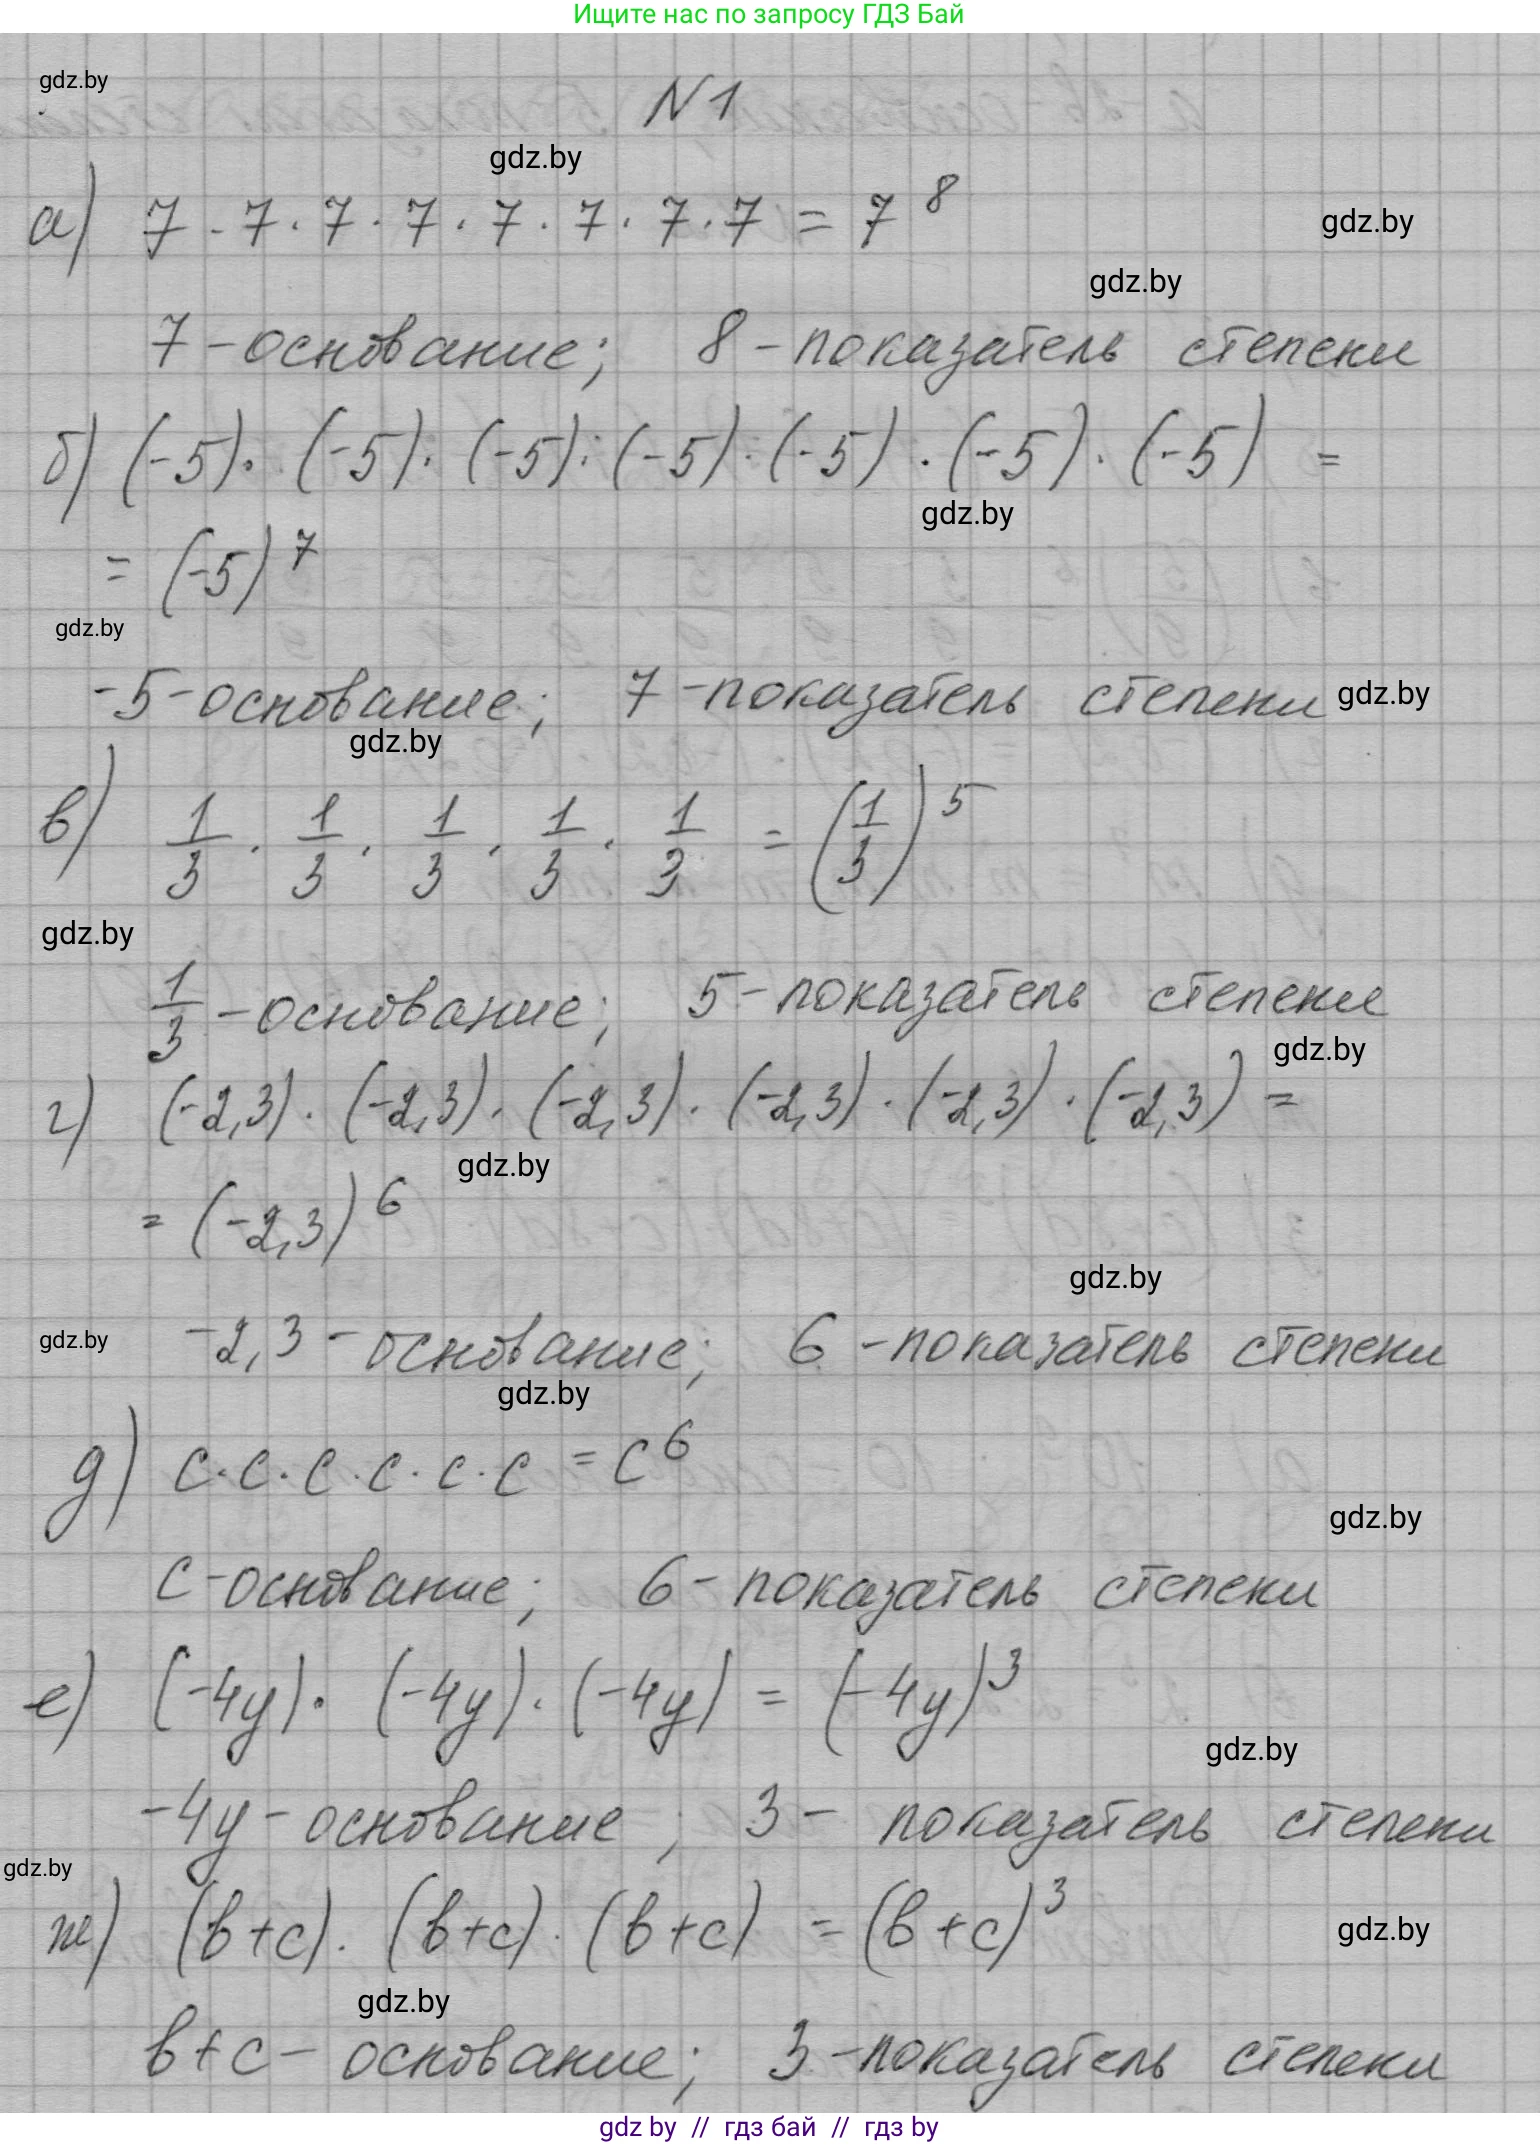 Ищите нас по запросу ГДЗ Бай
gdz.by
N 1
gdz.by
а) 7 · 7 · 7 · 7 · 7 · 7 · 7 · 7 = 7^8
gdz.by
gdz.by
7 - основание; 8 - показатель степени
б) (-5) · (-5) · (-5) · (-5) · (-5) · (-5) · (-5) =
gdz.by
= (-5)^7
gdz.by
-5 - основание; 7 - показатель степени gdz.by
gdz.by
в) 1/3 · 1/3 · 1/3 · 1/3 · 1/3 = (1/3)^5
gdz.by
1/3 - основание; 5 - показатель степени
gdz.by
г) (-2,3) · (-2,3) · (-2,3) · (-2,3) · (-2,3) · (-2,3) =
gdz.by
= (-2,3)^6
gdz.by
gdz.by -2,3 - основание; 6 - показатель степени
gdz.by
д) c · c · c · c · c · c = c^6
gdz.by
c - основание; 6 - показатель степени
е) (-4y) · (-4y) · (-4y) = (-4y)^3
gdz.by
-4y - основание; 3 - показатель степени
gdz.by
ж) (b+c) · (b+c) · (b+c) = (b+c)^3
gdz.by
gdz.by
b+c - основание; 3 - показатель степени
gdz by // гдз бай // гдз by